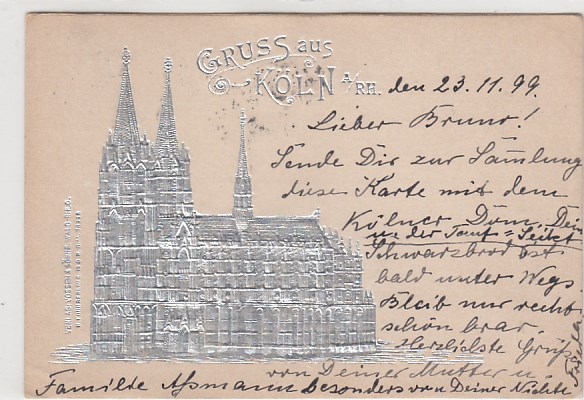 GRUSS aus
KÖLN A/RH. den 23.11.99.
Lieber Bruno!
Sende Dir zur Samlung
diese Karte mit dem
Kölner Dom. Dein
Schwarzbrod ist
bald unter Wegs.
Bleib nur recht
schön brav.
Herzlichste Grüße
von Deiner Mutter u.
Familie Assmann besonders von Deiner Nichte